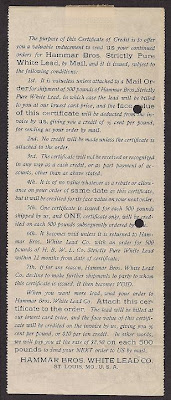 The purpose of this Certificate of Credit is to offer
you a valuable inducement to send us your continued
orders for Hammar Bros. Strictly Pure
White Lead, by Mail, and it is issued, subject to
the following conditions:
1st. It is valueless unless attached to a Mail Or-
der for shipment of 500 pounds of Hammar Bros. Strictly
Pure White Lead, in which case the lead will be billed
to you at our lowest card price, and the face value
of this certificate will be deducted from the in-
voice by us, giving you a credit of ½ cent per pound,
for sending us your order by mail.
2nd. No credit will be made unless the certificate is
attached to the order.
3rd. The certificate will not be received or recognized
in any way as a cash credit, or as part payment of ac-
counts, other than as above stated.
4th. It is of no value whatever as a rebate or allow-
ance on your order of same date as this certificate,
but it will be credited for its face value on your next order.
5th. One certificate will be issued for each 500 pounds
shipped by us, and ONE certificate only, will be cred-
ited on each 500 pounds subsequently ordered.
6th. It becomes void unless it is returned to Ham-
mar Bros. White Lead Co. with an order for 500
pounds of H. B. W. L. Co. Strictly Pure White Lead
within 12 months from date of issue.
7th. If for any reason, Hammar Bros. White Lead Co.
decline to make further shipments to party to whom
this certificate is issued, it then becomes VOID.
When you want more lead, send your order to
Hammar Bros. White Lead Co. Attach this cer-
tificate to the order. The lead will be billed at
our lowest card price, and the face value of this certifi-
cate will be credited on the invoice by us, giving you ½
cent per pound, or $10 per ton credit. In other words,
we will pay you at the rate of $2.50 on each 500
pounds to send your NEXT order to US by mail.
HAMMAR BROS. WHITE LEAD CO.
ST. LOUIS, MO., U. S. A.